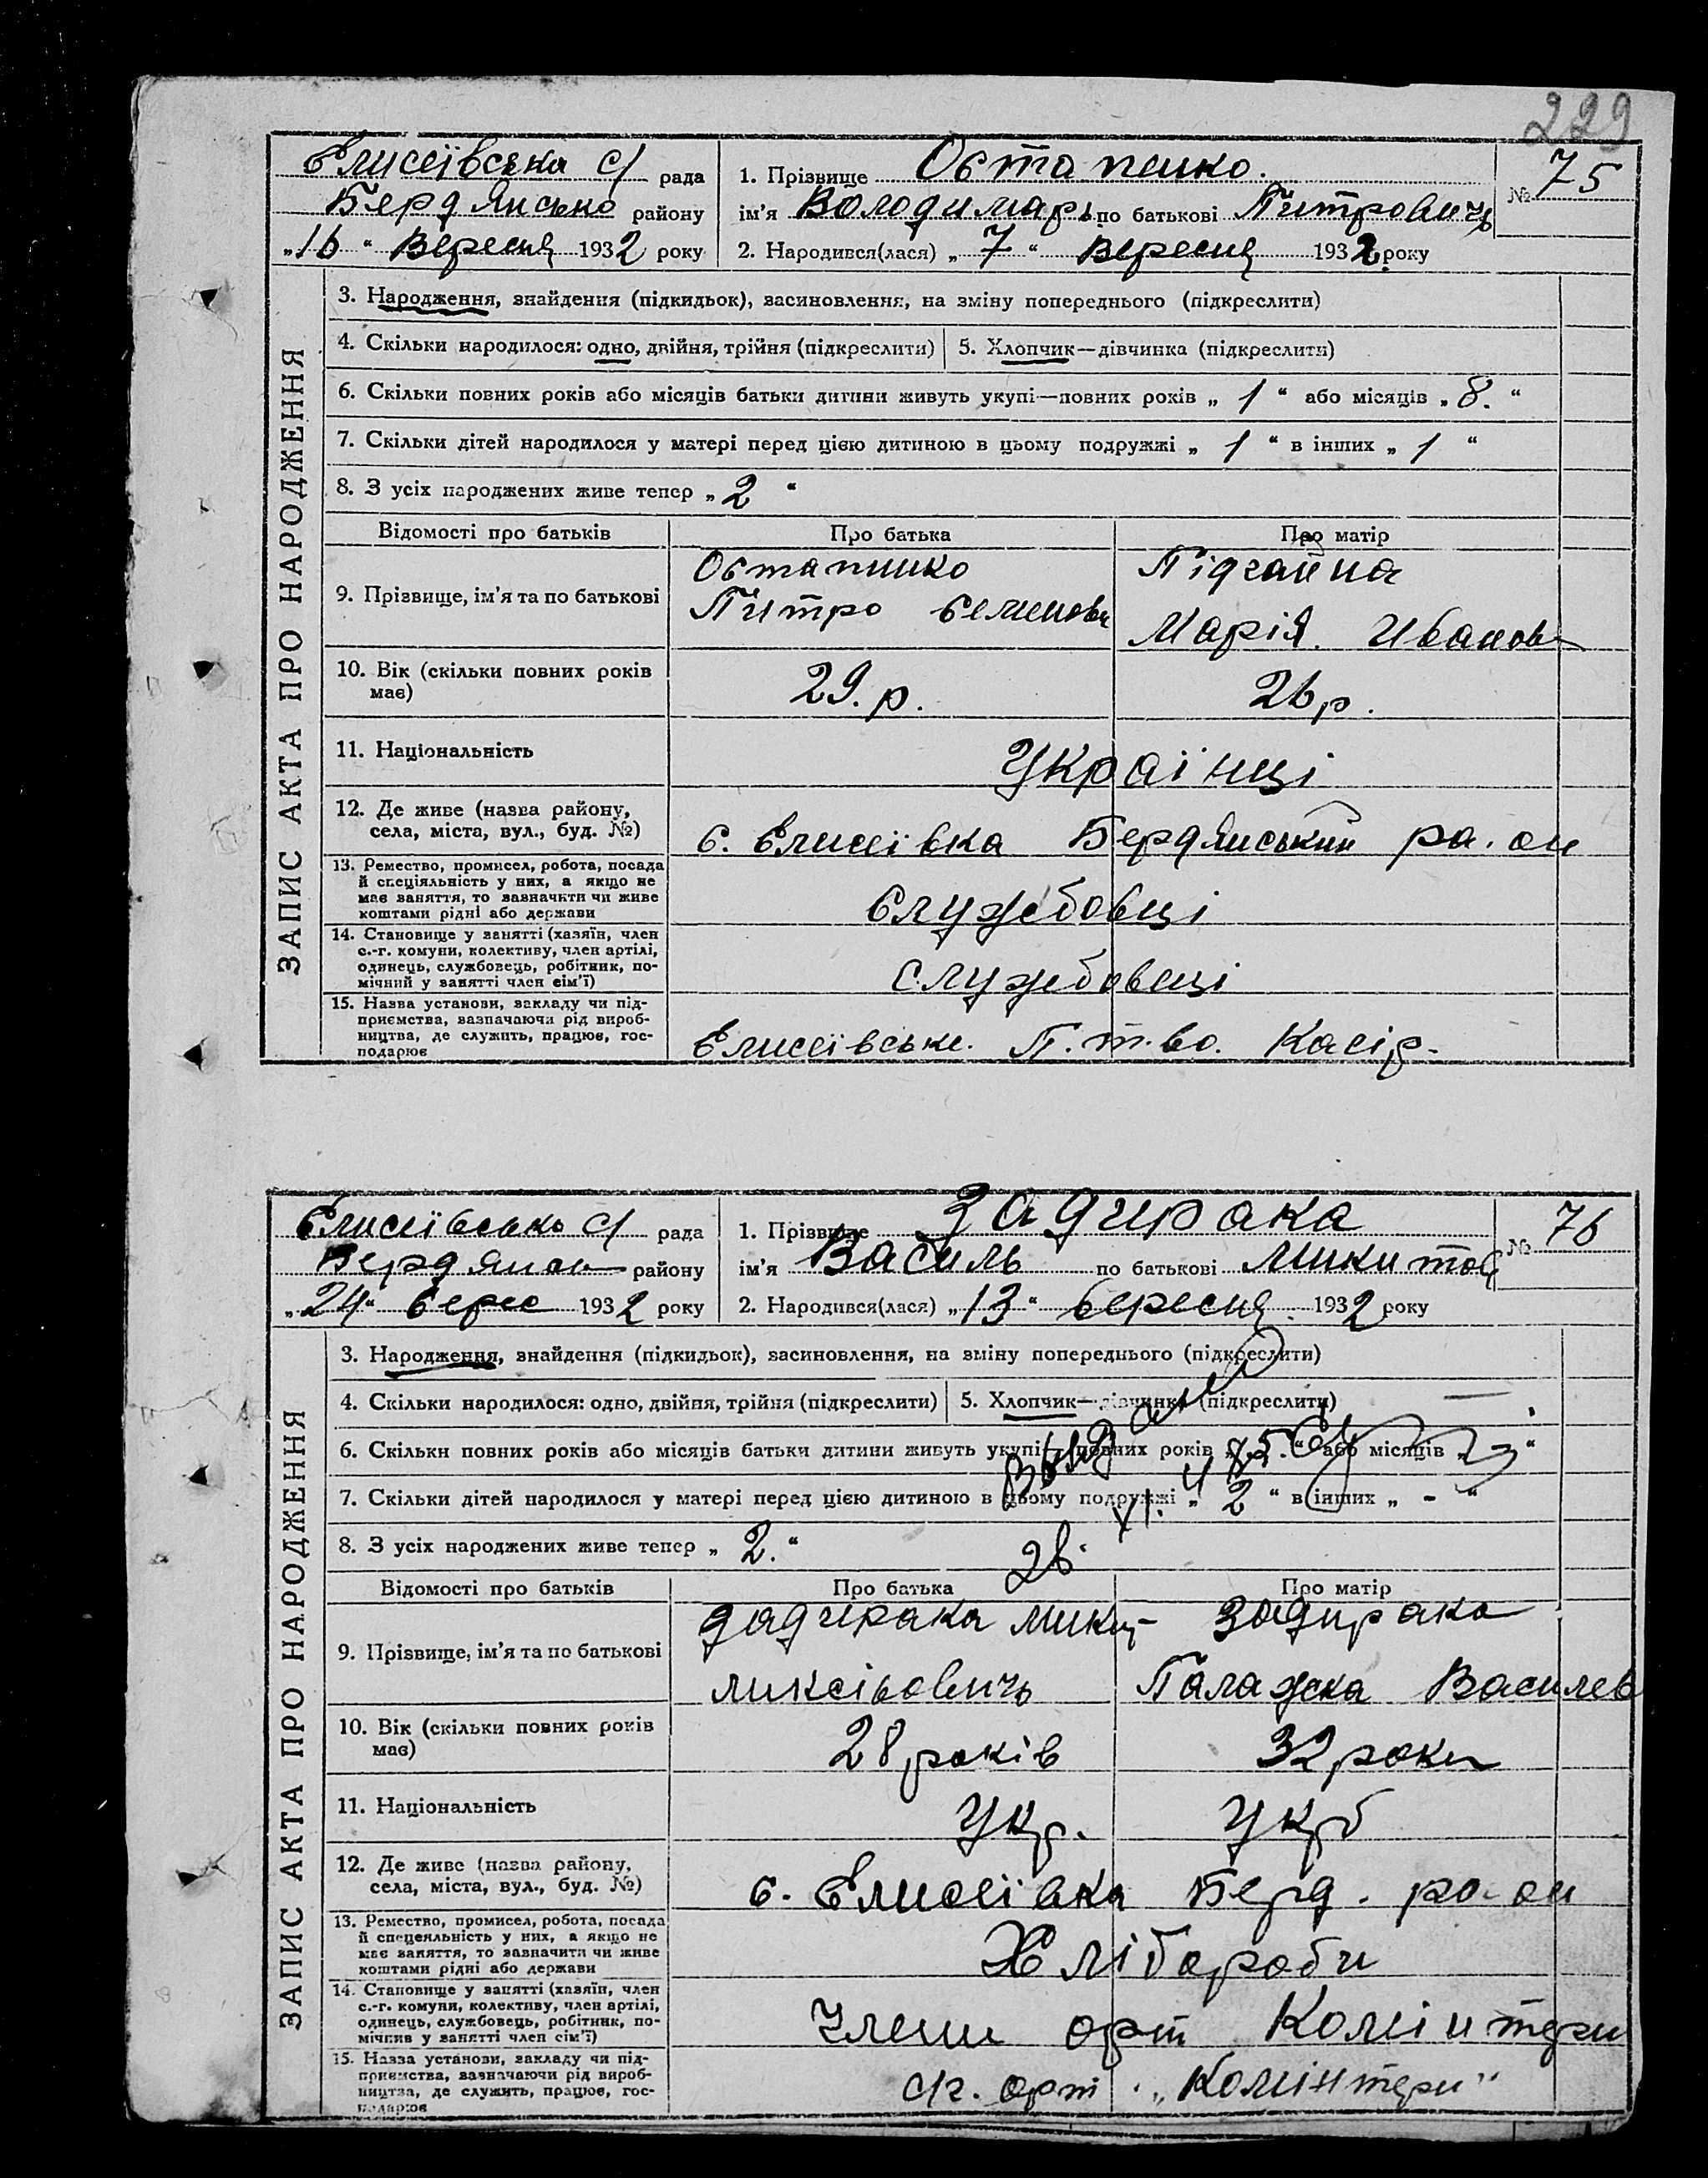 229
Елисеївська с/ рада
Бердянсько району
„16“ Вересня 1932 року
1. Прізвище Остапенко.
ім'я Володимарь по батькові Питровичь
2. Народився(лася) „7“ Вересня 1932 року
№ 75
ЗАПИС АКТА ПРО НАРОДЖЕННЯ
3. Народження, знайдення (підкидьок), засиновлення, на зміну попереднього (підкреслити)
4. Скільки народилося: одно, двійня, трійня (підкреслити)
5. Хлопчик—дівчинка (підкреслити)
6. Скільки повних років або місяців батьки дитини живуть укупі—повних років „1“ або місяців „8.“
7. Скільки дітей народилося у матері перед цією дитиною в цьому подружжі „1“ в інших „1“
8. З усіх народжених живе тепер „2“
Відомості про батьків
Про батька
Про матір
9. Прізвище, ім'я та по батькові
Остапинко
Питро Семенови
Підгайна
Марія. Иванов
10. Вік (скільки повних років
має)
29. р.
26 р.
11. Національність
Украінці
12. Де живе (назва району,
села, міста, вул., буд. №)
с. Елисеївка Бердянський ра.он
13. Ремество, промисел, робота, посада
й спеціяльність у них, а якщо не
має заняття, то зазначити чи живе
коштами рідні або держави
Служебовці
14. Становище у занятті (хазяїн, член
с.-г. комуни, колективу, член артілі,
одинець, службовець, робітник, по-
мічний у занятті член сім'ї)
Служебовеці
15. Назва установи, закладу чи під-
приємства, зазначаючи рід вироб-
ництва, де служить, працює, гос-
подарює
Елисеївське. П.т.во. Касір.
Елисеївсько с/ рада
району
„24“ верес 1932 року
1. Прізвище Задирака
ім'я Василь по батькові Микитов
2. Народився(лася) „13“ вересня 1932 року
№ 76
ЗАПИС АКТА ПРО НАРОДЖЕННЯ
3. Народження, знайдення (підкидьок), засиновлення, на зміну попереднього (підкреслити)
4. Скільки народилося: одно, двійня, трійня (підкреслити)
5. Хлопчик—дівчинка (підкреслити)
6. Скільки повних років або місяців батьки дитини живуть укупі—повних років „ “ або місяців „ “
7. Скільки дітей народилося у матері перед цією дитиною в цьому подружжі „2“ в інших „-“
8. З усіх народжених живе тепер „2.“
Відомості про батьків
Про батька
Про матір
9. Прізвище, ім'я та по батькові
Задирака Мики
ликсійовичь
Задирака
Палажка Василев
10. Вік (скільки повних років
має)
28 років
32 роки
11. Національність
Укр.
Укр
12. Де живе (назва району,
села, міста, вул., буд. №)
с. Елисеївка Берд. ра-он
13. Ремество, промисел, робота, посада
й спецеяльність у них, а якщо не
має заняття, то зазначити чи живе
коштами рідні або держави
Хлібороби
14. Становище у занятті (хазяїн, член
с.-г. комуни, колективу, член артілі,
одинець, службовець, робітник, по-
мічний у занятті член сім'ї)
Члени орт Комінтерн
15. Назва установи, закладу чи під-
приємства, зазначаючи рід вироб-
ництва, де служить, працює, гос-
подарює
с/г. орт. „Комінтерн“